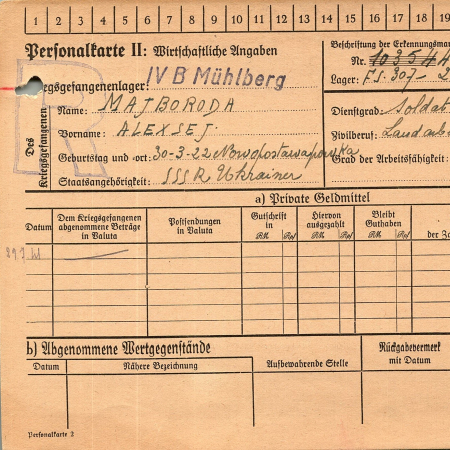 1 2 3 4 5 6 7 8 9 10 11 12 13 14 15 16 17 18 19
Personalkarte II: Wirtschaftliche Angaben
Beschriftung der Erkennungsmar
Nr. 10354
Lager:
Kriegsgefangenenlager: IV B Mühlberg
R
Des Kriegsgefangenen
Name: MAJBORODA
Vorname: ALEXSEJ.
Geburtstag und -ort: 30-3-22
Staatsangehörigkeit: SSSR Ukrainer
Dienstgrad: Soldat
Zivilberuf: Landarbe
Grad der Arbeitsfähigkeit:
a) Private Geldmittel
Datum
Dem Kriegsgefangenen abgenommene Beträge in Valuta
Postsendungen in Valuta
Gutschrift in
RM Rpf
Hiervon ausgezahlt
RM Rpf
Bleibt Guthaben
RM Rpf
der Za
b) Abgenommene Wertgegenstände
Datum
Nähere Bezeichnung
Aufbewahrende Stelle
Rückgabevermerk mit Datum
Personalkarte 2